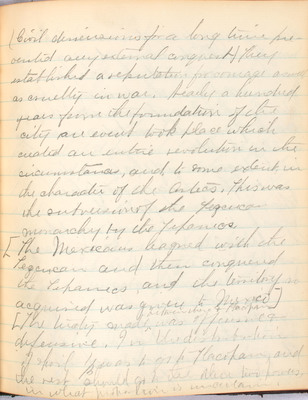 (Civil dissensions for a long time pre-
vented any external conquest) They
established a reputation for courage and
as cruelty in war. Nearly a hundred
years from the foundation of the
city an event took place which
created an entire revolution in the
circumstances, and to some extent in
the character of the Aztecs. This was
the subversion of the Tezcucan
monarchy by the Tepanecs
[The Mexicans leagued with the
Tezcucan and then conquered
the Tepanecs, and the territory so
acquired was given to Mexico]
[The treaty was offensive &
defensive. In the distribution
of spoil 1/5 was to go to Tlacopan, and
the rest should go to the other two powers
in what proportion is uncertain